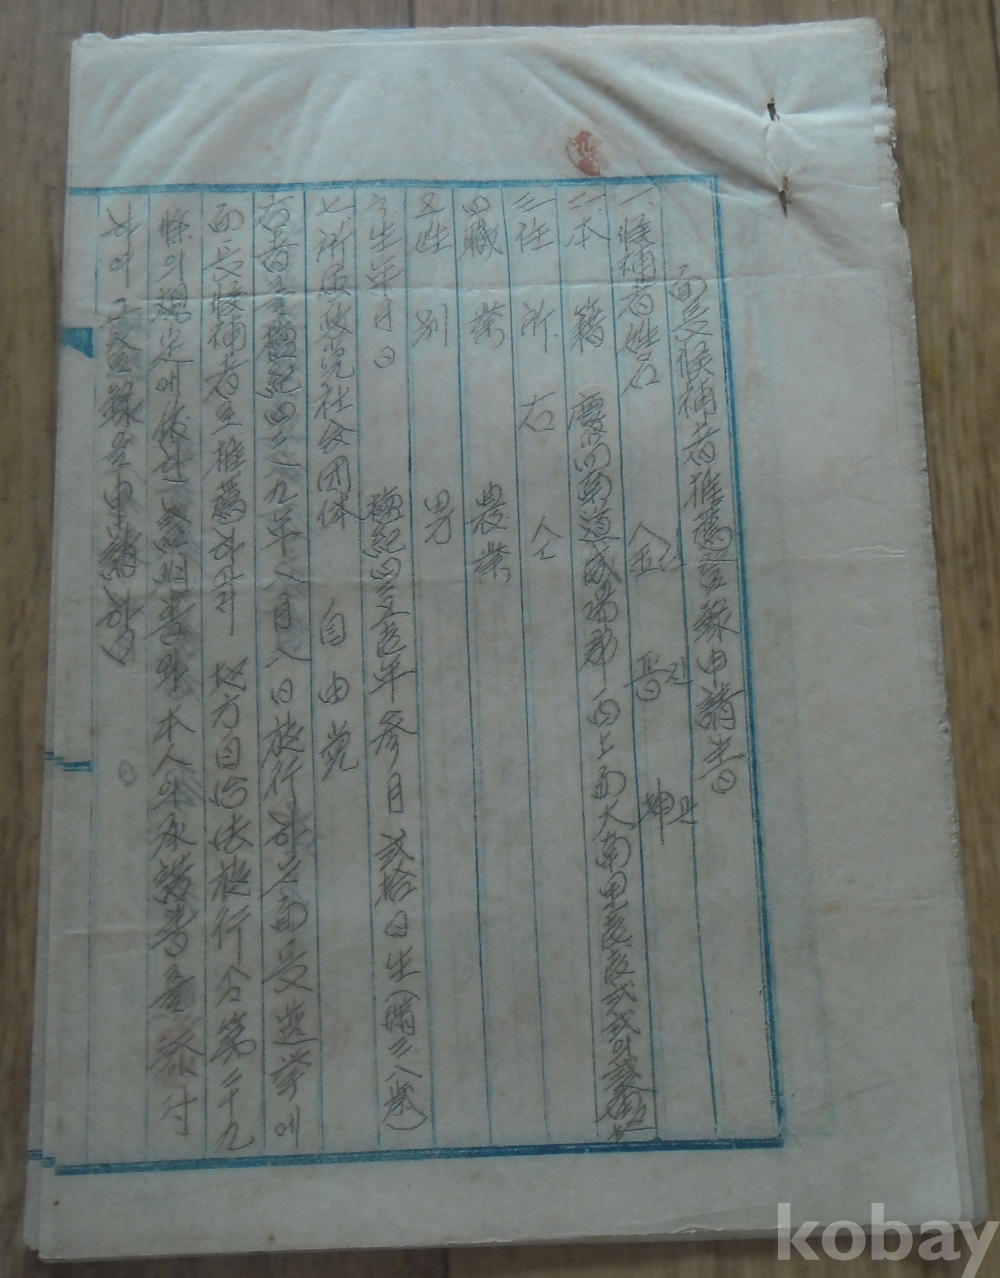 面長候補者推薦登錄申請書
一、候補者姓名 金 晋 坤
김 진 곤
二、本籍 慶尚南道咸陽郡西上面大南里
三、住所 右仝
四、職業 農業
五、姓別 男
六、生年月日 檀紀四 年参月弍拾日生(満三八歳)
七、所屬政党社会団体 自由党
右者를檀紀四二八九年八月八日施行하는面長選挙에
面長候補者로推薦하라 地方自治法施行令第二十九
條의規定에依하 本人의承諾書를添付
하여 登錄을申請함
kobay